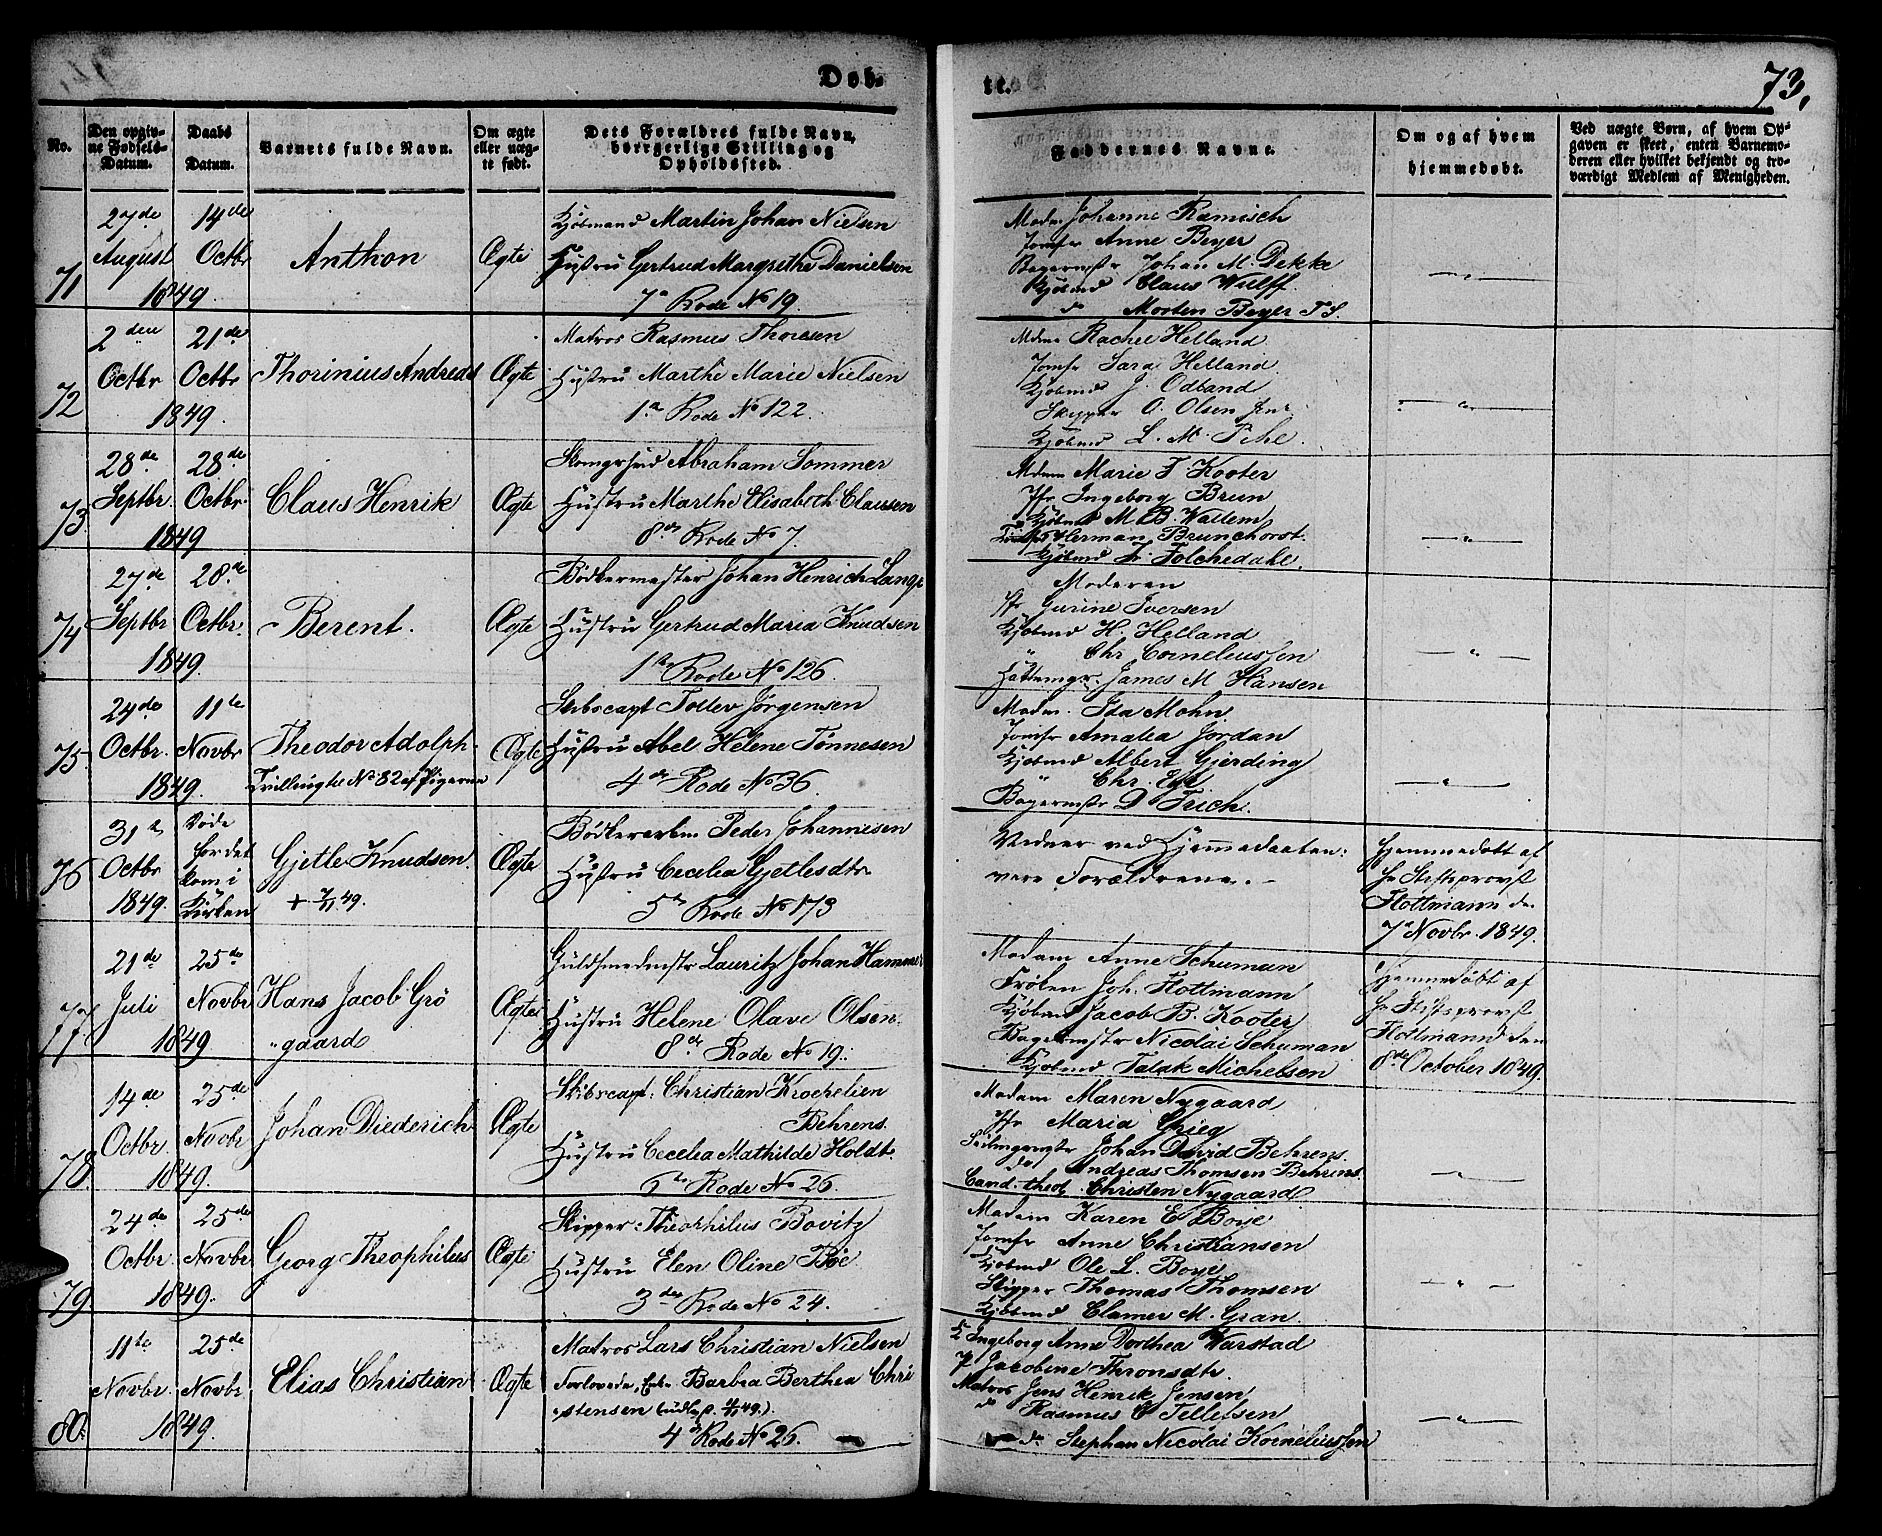 Døb-
te.
73,
No.
Den opgiv-
ne Fødsels-
Datum.
Daabs
Datum.
Barnets fulde Navn.
Om ægte
eller uæg-
te født.
Dets Forældres fulde Navn,
borgerlige Stilling og
Opholdssted.
Faddernes Navne.
Om og af hvem
hjemmedøbt.
Ved uægte Børn, af hvem Op-
gaven er skeet, enten Barnemo-
deren eller hvilket bekjendt og tro-
værdigt Medlem af Menigheden.
71
27de August
14de Octbr
1849.
Anthon
Ægte
Kjøbmand Martin Johan Nielsen
Hustru Gertrud Margrethe Danielsen
7de Rode No 19.
Madm Johanne Ramisch
Jomfr Anne Beyer
Bagermstr Johan M. Dekke
Kjøbmd Claus Wulff
do Morten Beyer T S.
— " —
72
2den Octbr
21de Octbr
1849.
Thorinius Andreas
Ægte
Matros Rasmus Thoresen
Hustru Marthe Marie Nielsen
1ste Rode No 122.
Mdme Rachel Helland
Jomfr Sara Helland
Kjøbmd J. Odband
Skipper O. Olsen Jnr
Kjøbmd L. M. Pihl.
— " —
73
28de Septbr.
28de Octbr.
1849
Claus Henrik
Ægte
Abraham Sommer
Hustru Marthe Elisabeth Claussen
8de Rode No 7.
Mdme Marie F Kooter
Jfr Ingeborg Brun
Kjøbmd M. B. Wallem
Herman Brunchorst.
Kjøbmd F. Folchedahl.
— " —
74
27de Septbr
28de Octbr.
1849.
Berent.
Ægte
Bødkermester Johan Henrich Lange
Hustru Gertrud Maria Knudsen
1ste Rode No 126.
Moderen
Jfr Gurine Iversen
Kjøbmd H. Helland
" Chr Corneliussen
Hattemgr. James M Hansen
— " —
75
24de Octbr.
11te Novbr
1849.
Theodor Adolph.
Tvilling te No 82 af Pigerne
Ægte
Skibscapt Tollev Jørgensen
Hustru Abel Helene Tønnesen
4de Rode No 36.
Madm. Ida Mohn.
Jomfr Amalia Jordan
Kjøbmd Albert Gjerding
"
Bagermstr D Frich.
— " —
76
31te Octbr 1849.
Døde før det kom i Kirken
Gjetle Knudsen.
+ 7/11 49.
Ægte
Bødkerarbm Peder Johannesen
Hustru Cecelia Gjetlesdtr
5te Rode No 173
Vidner ved Hjemmedaaben:
vare Forældrene. —
Hjemmedøbt af
Hr Stiftsprovst
Flottmann den
7de Novbr. 1849.
77
21de Juli
25de Novbr
1849
Hans Jacob Grø
"gaard
Ægte
Guldsmedmstr Lauritz Johan Hammer
Hustru Helene Olave Olsen.
8de Rode No 19.
Madam Anne Schuman
Frøken Joh. Flottmann
Kjøbmd Jacob B. Kooter
Bagermstr Nicolai Schuman
Kjøbmd Falak Michelsen
Hjemmedøbt af
Hr Stiftsprovst
Flottmann den
8de October 1849.
78
14de Octbr.
25de Novbr.
1849.
Johan Diederich
Ægte
Skibscapt: Christian Kroepelien
Behrens.
Hustru Cecelea Mathilde Holdt.
6te Rode No 26.
Madam Maren Nygaard
Jfr Maria Grieg
Seilmgermstr Johan David Behrens.
do Andreas Thomsen Behrens.
Cand. theol. Christen Nygaard
— " —
79
24de Octbr.
25de Novbr.
1849.
Georg Theophilus
Ægte
Skipper: Theophilus Bovitz
Hustru Elen Oline Bøe
3die Rode No 24.
Madam Karen E. Boye
Jomfr Anne Christiansen
Kjøbmd Ole L. Boye
Skipper Thomas Thomsen
Kjøbmd Clamer M. Gran
— " —
80.
11te Novbr.
25de Novbr
1849.
Elias Christian
Ægte
Matros Lars Christian Nielsen
Forlovede, Enke Barbra Berthea Chri
"stensen
4de Rode No 26.
Ingeborg Anne Dorthea Warstad
P. Jacobine Thronsdtr.
Matros Jens Henrik Jensen
do Rasmus E Tellefsen
do Stephan Nicolai Korneliussen
— " —